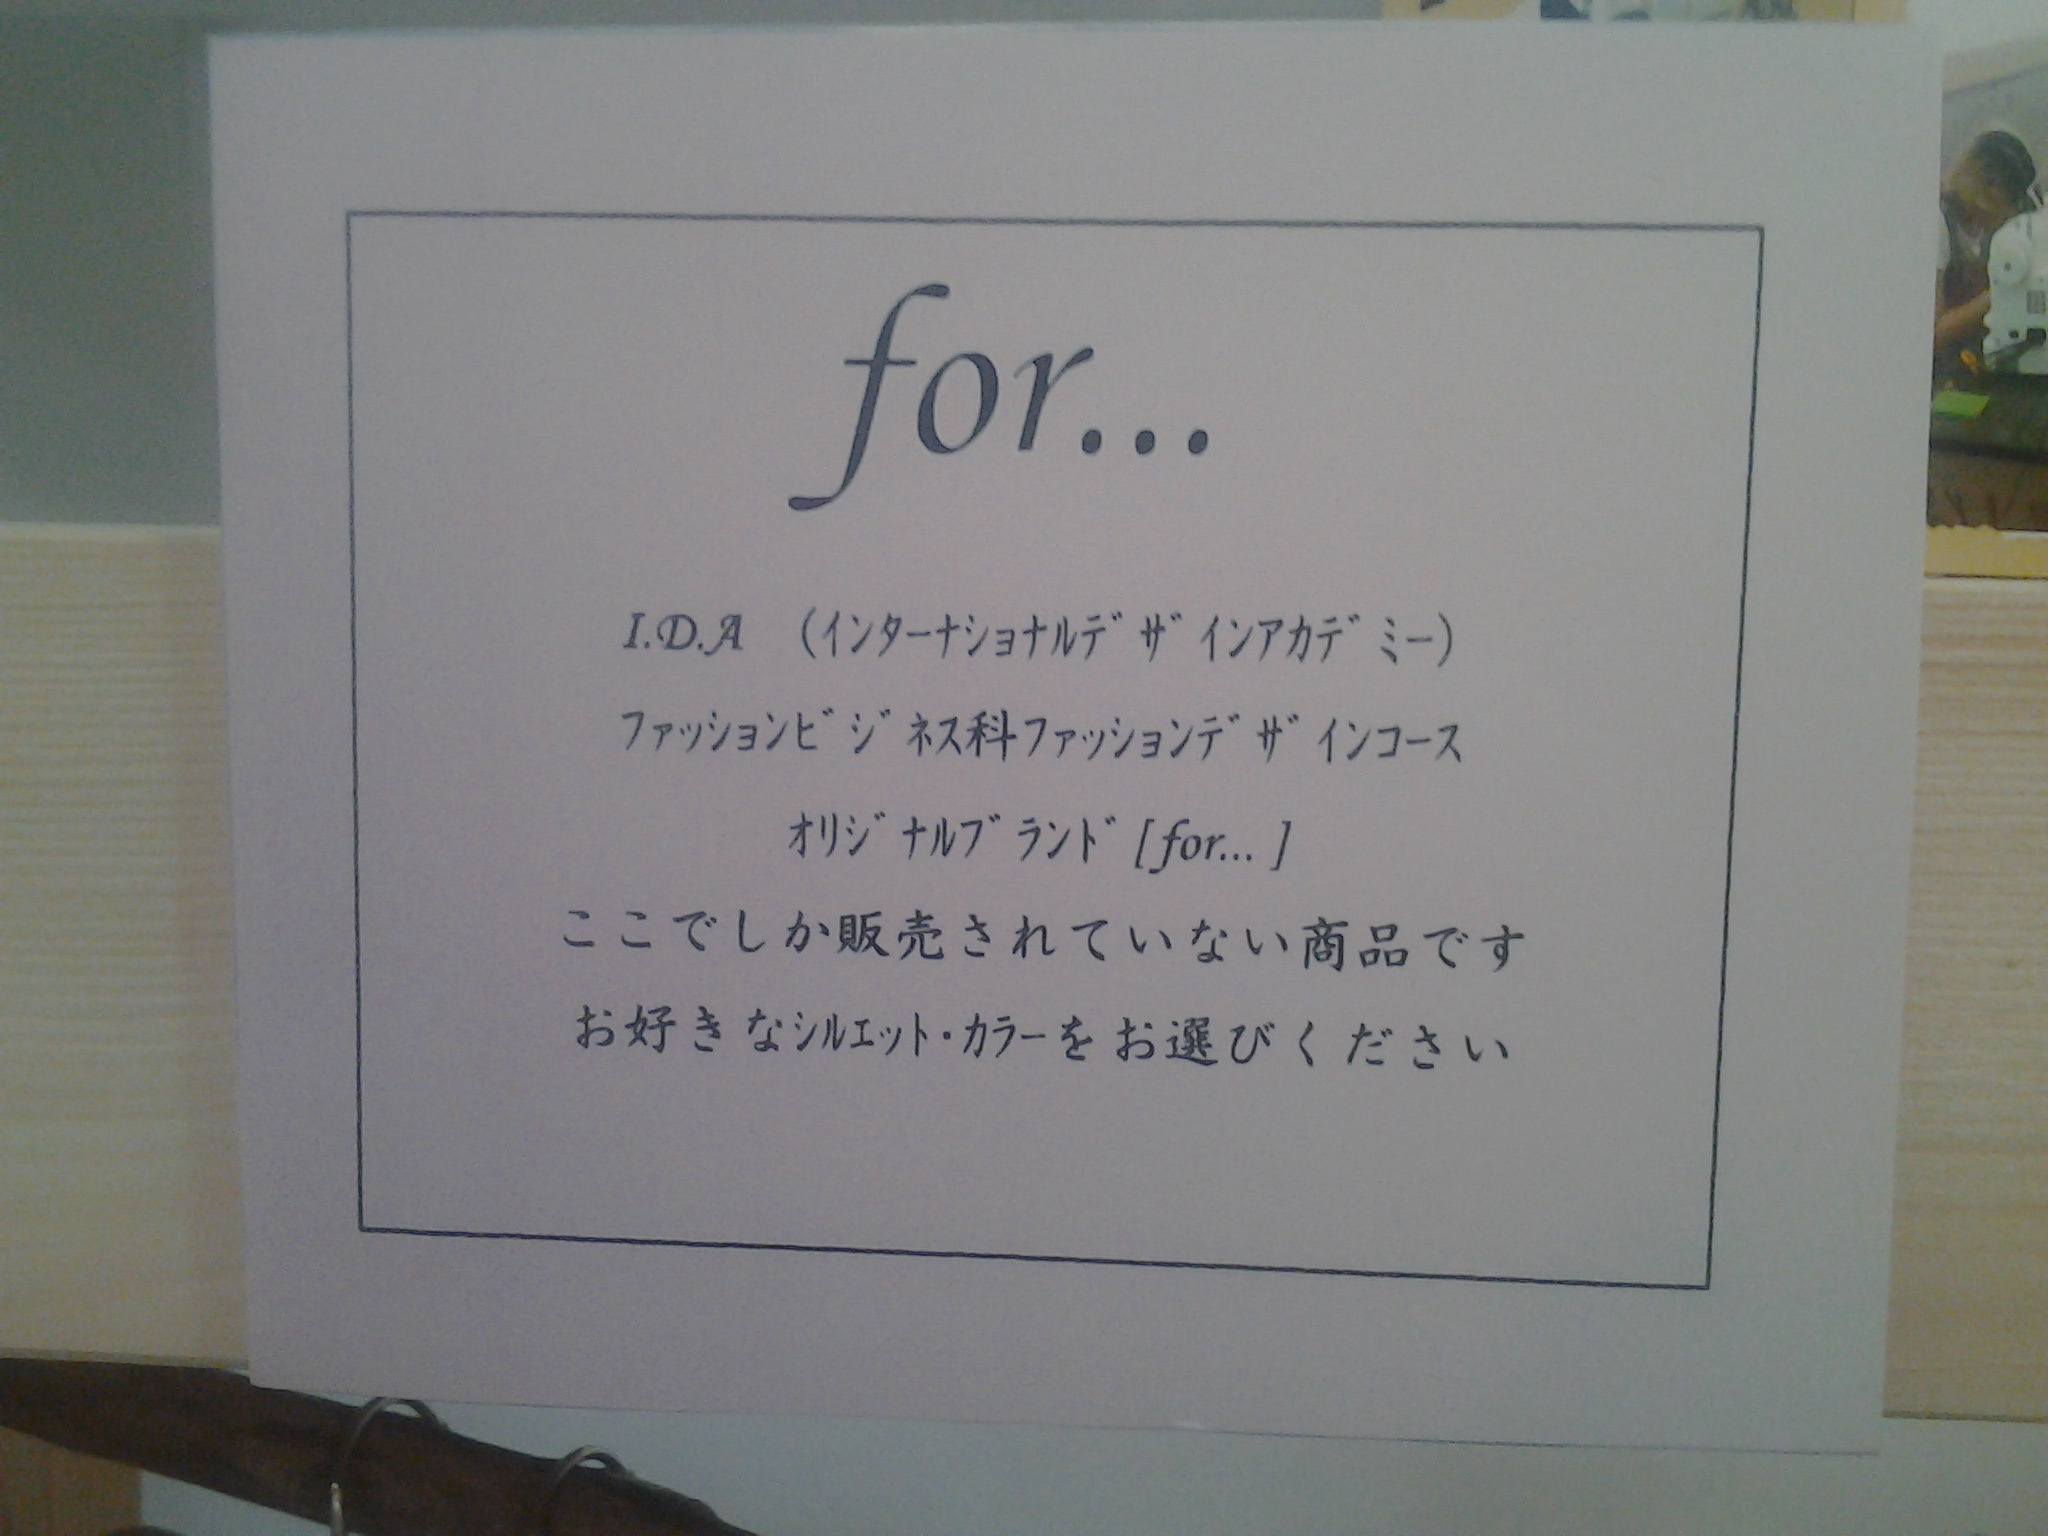 for...
I.D.A （ｲﾝﾀｰﾅｼｮﾅﾙﾃﾞｻﾞｲﾝｱｶﾃﾞﾐｰ）
ﾌｧｯｼｮﾝﾋﾞｼﾞﾈｽ科ﾌｧｯｼｮﾝﾃﾞｻﾞｲﾝｺｰｽ
ｵﾘｼﾞﾅﾙﾌﾞﾗﾝﾄﾞ[for... ]
ここでしか販売されていない商品です
お好きなｼﾙｴｯﾄ・ｶﾗｰをお選びください